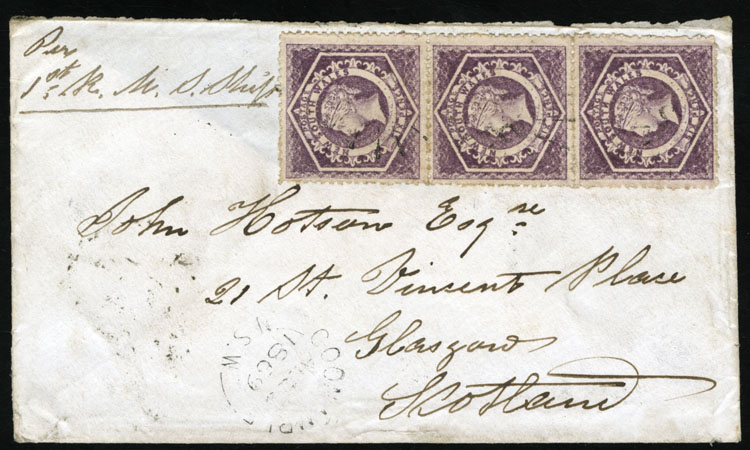 Per
1st R. M. S. Ship
POSTAGE SIX PENCE
NEW SOUTH WALES
POSTAGE SIX PENCE
NEW SOUTH WALES
POSTAGE SIX PENCE
NEW SOUTH WALES
John Hotson Esqre
21 St. Vincent Place
Glasgow
Scotland
N.S.W